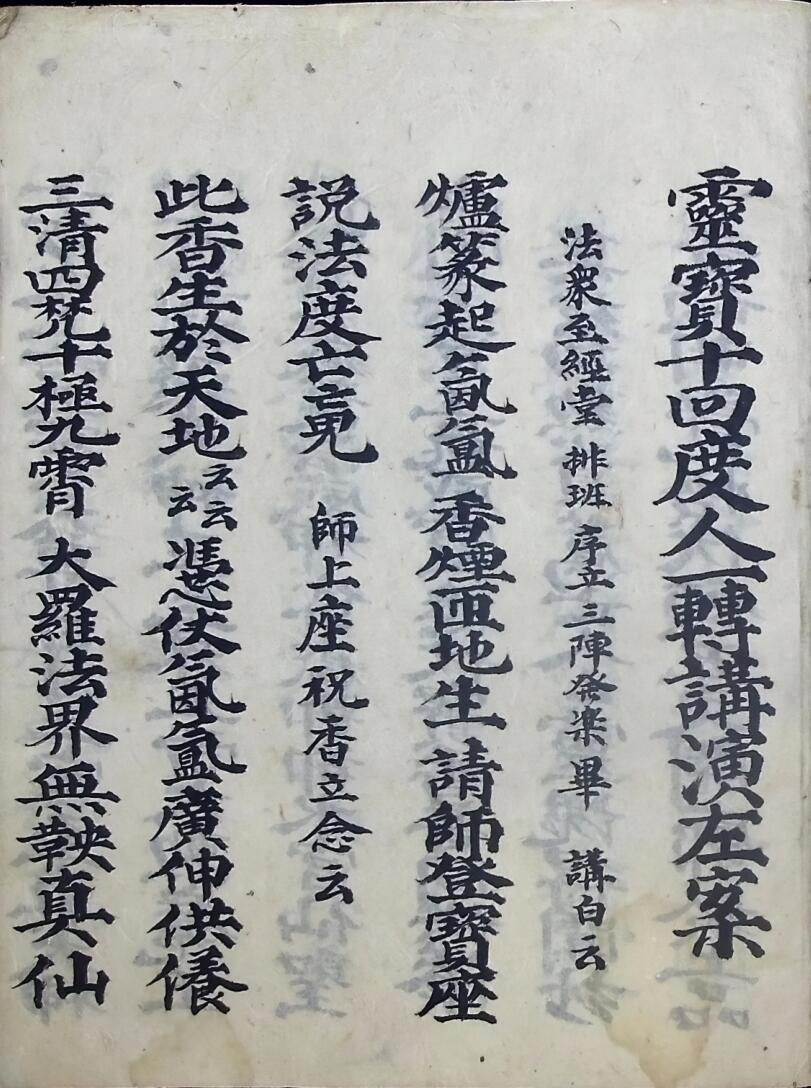 靈寶十回度人一轉講演左案
法衆至經堂 排班 序立三陣發楽畢 講白云
爐篆起氤氳 香煙匝地生 請師登寶座
說法度亡䰟 師上座祝香立念云
此香生於天地云云云 憑伏氤氳廣伸供養
三清四梵十極九霄 大羅法界無鞅真仙